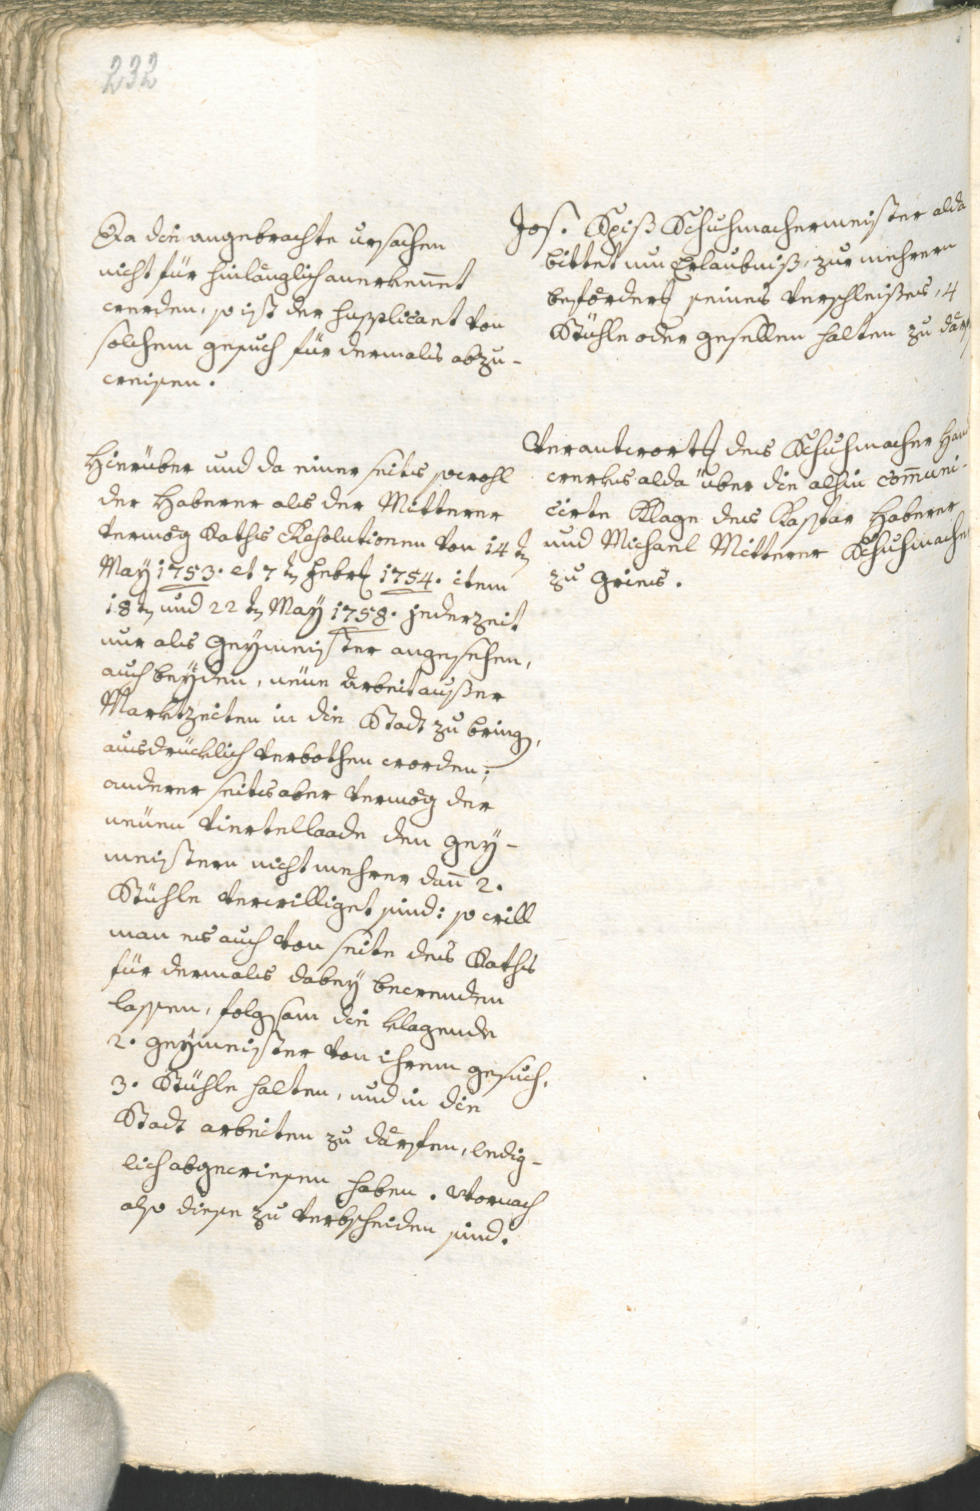 232
Da die angebrachte ursachen
nicht für hinlänglich anerkennet
werden, so ist der Supplicant von
solchem gesuch für dermals abzu-
weisen.
Jos. Spiß Schuhmachermeister alda
bittet um Erlaubniß, zur mehrern
beförder&lt;ung&gt; seines Verschleißes, 4
Stühle oder gesellen halten zu
Hierüber und da einer seits sowohl
der Haberer als der Mitterer
vermög Raths Resolutionen von 14 t&lt;en&gt;
May 1753. et 7 t&lt;en&gt; Febr. 1754. item
18 t&lt;en&gt; und 22 t&lt;en&gt; May 1758. jederzeit
nur als Geymeister angesehen,
auch beyden, neüe arbeit außer
Marktzeiten in die Stadt zu bring&lt;en&gt;,
ausdrücklich verbothen worden;
anderer seits aber vermög der
neüen Viertellaade den gey-
meistern nicht mehrer dañ 2.
Stühle verwilliget sind: so will
man es auch von seite des Raths
für dermals dabey bewenden
lassen, folgsam die klagende
2. geymeister von ihrem gesuch,
3. Stühle halten, und in die
Stadt arbeiten zu därfen, ledig-
lich abgewiesen haben. Wornach
also diese zu verbscheiden sind.
Verantwort&lt;ung&gt; des Schuhmacher
werks alda über die alhin com̄uni-
cirte Klage des Kaspar Haberer
und Michael Mitterer Schuhmacher
zu Gries.